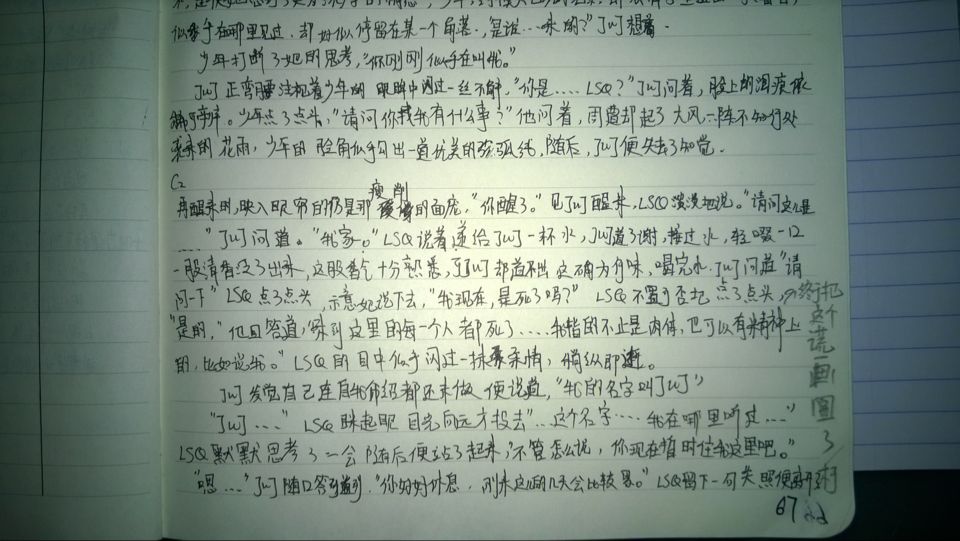 似乎在哪里见过，却好似停留在某一个角落，是谁…来的？”JWJ想着。
少年打断了她的思考，“你刚刚似乎在叫我。”
JWJ正弯腰注视着少年的眼眸中闪过一丝不解，“你是.... LSQ？”JWJ问着，脸上的泪痕依
稀可辨。少年点了点头，“请问你找我有什么事？”他问着，周围却起了大风，一阵不知何处
来的花雨，少年的脸角似乎勾出一道优美的弧线，随后，JWJ便失去了知觉。
C2
瘦削
再醒来时，映入眼帘的仍是那的面庞，“你醒了。”见JWJ醒来，LSQ淡淡地说。“请问这儿是
....”JWJ问道。“我家。”LSQ说着递给JWJ一杯水，JWJ道了谢，接过水，轻啜一口
一股清香泛了出来，这股香气十分熟悉，可JWJ却道不出这确为何味，喝完水，JWJ问道“请
问一下”LSQ点了点头，示意她说下去，“我现在，是死了吗？” LSQ不置可否地点了点头，
“是的，”他回答道，“来到这里的每一个人都死了....我指的不止是肉体，也可以有精神上
的，比如说我。”LSQ的目中似乎闪过一抹亲情，稍纵即逝。
JWJ发觉自己连自我介绍都还未做，便说道，“我的名字叫JWJ”
“JWJ....” LSQ眯起眼目光向远方投去“...这个名字....我在哪里听过....”
LSQ默默思考了一会随后便站了起来，“不管怎么说，你现在暂时住我这里吧。”
“嗯...”JWJ随口答到，“你好好休息，刚来这的几天会比较累。”LSQ留下一句
终于把
这个
谎
画
圆
了
67